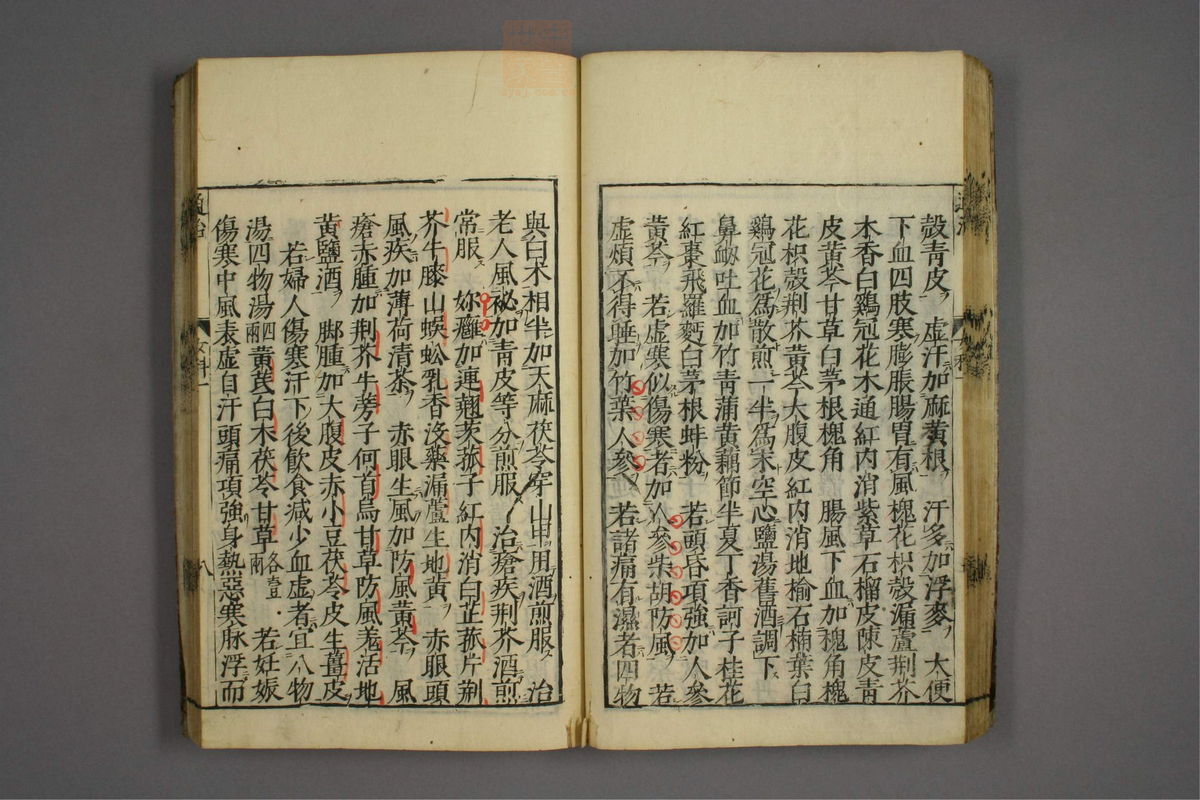 殻靑皮ヲ 虚汗加麻黄根ヲ 汗多加浮麥ヲ 大便
下血四肢寒膨脹腸胃有風槐花枳殻漏蘆荆芥
木香白鷄冠花木通紅内消紫草石榴皮陳皮靑
皮黄芩甘草白茅根槐角 腸風下血加槐角槐
花枳殻荆芥黄芩大腹皮紅内消地榆石楠葉白
鷄冠花爲散煎一半爲末空心鹽湯舊酒調下
鼻衂吐血加竹靑蒲黄藕節半夏丁香訶子桂花
紅棗飛羅麪白茅根蚌粉 若頭昏項強加人參
黄芩 若虚寒似傷寒者加人參柴胡防風 若
虚煩不得睡加竹葉人參 若諸痛有濕者四物
通治 女科一
與白术相半加天麻茯苓穿山甲用酒煎服 治
老人風祕加靑皮等分煎服 治瘡疾荆芥酒煎
常服 妳癰加連翹芙蓉子紅内消白芷菰片荆
芥牛膝山蜈蚣乳香沒藥漏蘆生地黄 赤眼頭
風疾加薄荷淸茶 赤眼生風加防風黄芩 風
瘡赤腫加荆芥牛蒡子何首烏甘草防風羗活地
黄鹽酒 脚腫加大腹皮赤小豆茯苓皮生薑皮
若婦人傷寒汗下後飮食减少血虚者宜八物
湯四物湯四兩黄芪白术茯苓甘草各壹兩 若妊娠
傷寒中風表虚自汗頭痛項強身熱惡寒脉浮而
通治 女科一 八